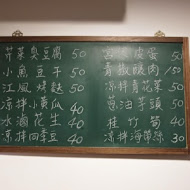 芥菜臭豆腐 50
小魚豆干 50
江風烤麩 50
涼拌小黃瓜 40
水滷花生 40
涼拌四季豆 40
皮蛋 50
青椒釀肉 150
涼拌青花菜 50
蔥油芋頭 50
桂竹筍 40
涼拌海帶絲 30